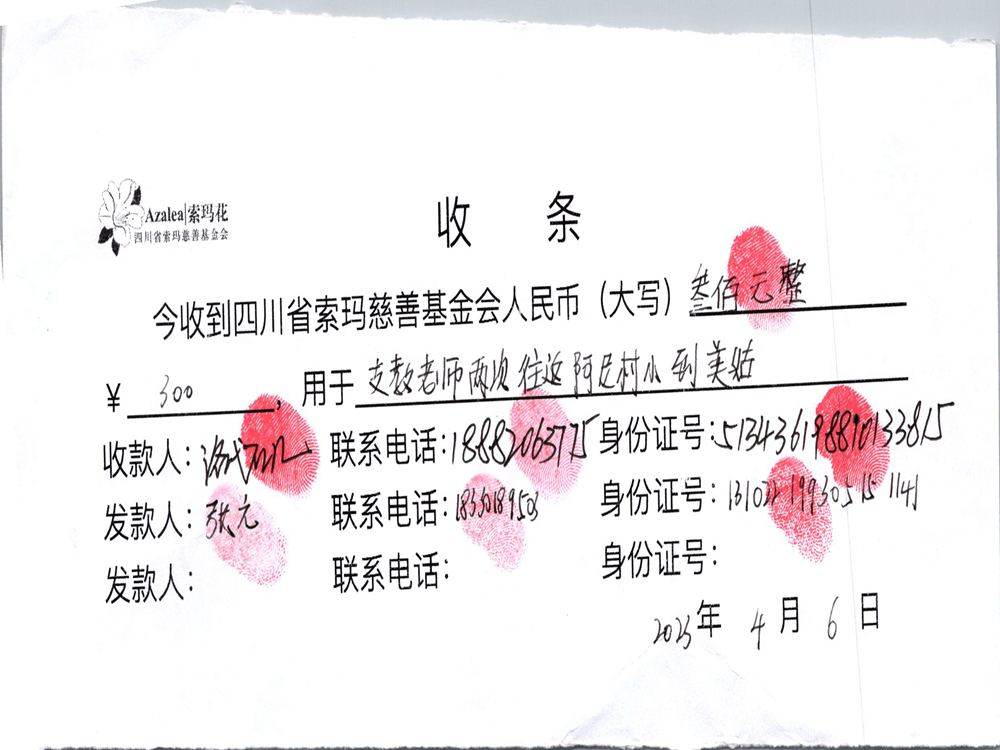 Azalea|索玛花
四川省索玛慈善基金会
收 条
今收到四川省索玛慈善基金会人民币（大写）叁佰元整
¥ 300 ，用于 支教老师两次往返阿尼村小到美姑
收款人：洛代 联系电话：18882063775 身份证号：513436198810133815
发款人：张元 联系电话：18330189503 身份证号：131022199305151141
发款人： 联系电话： 身份证号：
2023年 4月 6日